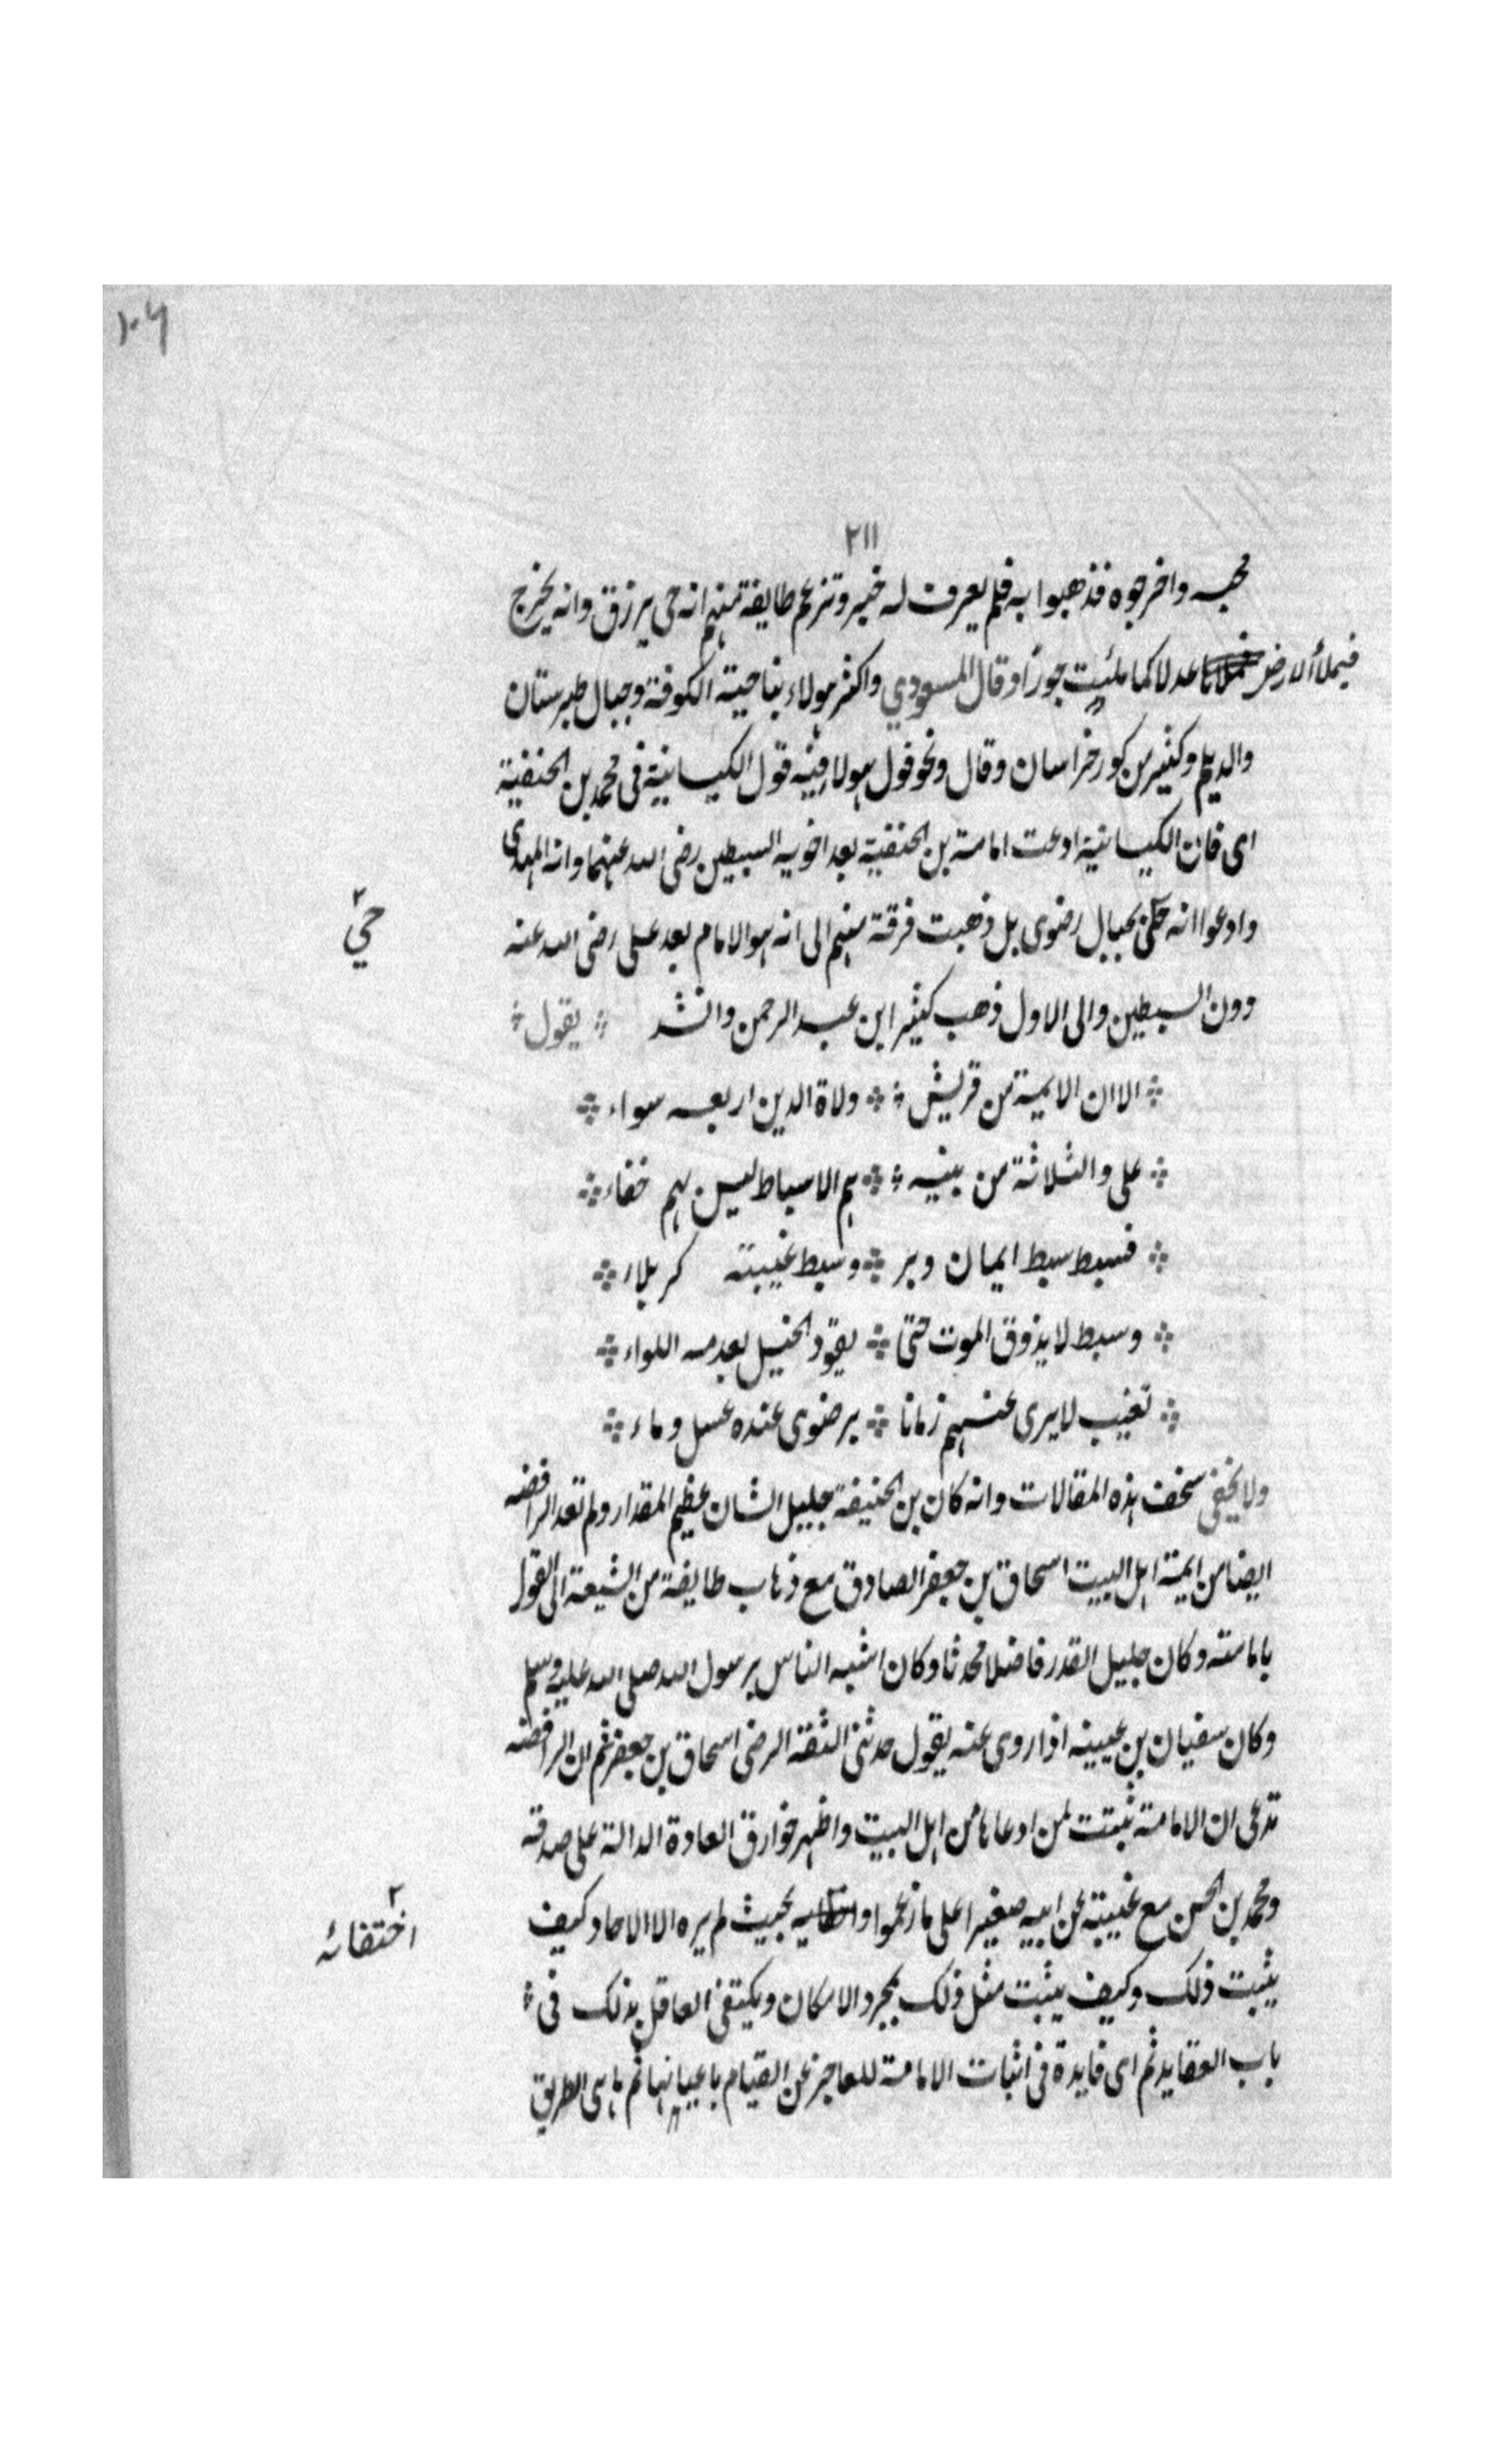 ١٠٦
٢١١
واخرجوه فذهبوا به فلم يعرف له خبر وتزعم طايفة منهم انه حى يرزق وانه يخرج
فيملأ الارض عدلا كما ملئت جورا وقال المسعودي واكثر هولاء بناحية الكوفة وجبال طبرستان
والديلم وكثير من كور خراسان وقال ونحو قول هولا فيه قول الكيسانية فى محمد بن الحنفية
اى فان الكيسانية ادعت امامة بن الحنفية بعد اخويه السبطين رضى الله عنهما وانه المهدى
وادعوا انه بجبال رضوى بل ذهبت فرقة منهم الى انه هو الامام بعد على رضى الله عنه
حيّ
دون السبطين والى الاول ذهب كثير ابن عبد الرحمن وانشد يقول
الا ان الايمة من قريش ولاة الدين اربعه سواء
على والثلاثة من بنيه هم الاسباط ليس لهم خفاء
فسبط سبط ايمان وبر وسبط غيبته كربلاء
وسبط لا يذوق الموت حتى يقود الخيل بعدمه اللواء
تغيب لا يرى عنهم زمانا برضوى عنده عسل وماء
ولا يخفى سخف هذه المقالات وانه كان بن الحنيفة جليل الشان عظيم المقدار ولم تعد الرافضه
ايضا من ايمة اهل البيت اسحاق بن جعفر الصادق مع ذهاب طايفة من الشيعة الى القول
بامامته وكان جليل القدر فاضلا محدثا وكان اشبه الناس برسول الله صلى الله عليه وسلم
وكان سفيان بن عيينه اذا روى عنه يقول حدثنى الثقة الرضى اسحاق بن جعفر ثم ان الرافضه
تدعى ان الامامة ثبتت لمن ادعاها من اهل البيت واظهر خوارق العادة الدالة على صدقه
ومحمد بن الحسن مع غيبته عن ابيه صغيرا على ما زعموا بحيث لم يره الا الاحاد وكيف
٢ اختفائه
يثبت ذلك وكيف يثبت مثل ذلك بمجرد الامكان ويكتفى العاقل بذلك فى
باب العقايد ثم اى فايدة فى اثبات الامامة للعاجز عن القيام باعبائها ثم ما هى الطريق